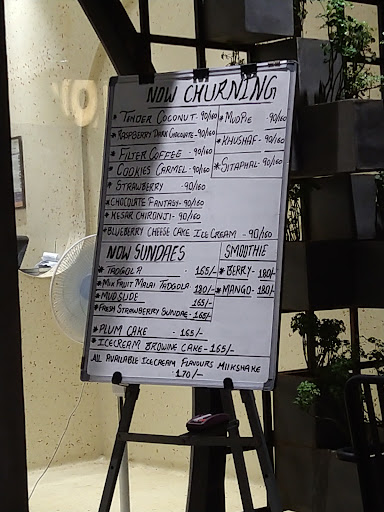 NOW CHURNING
* TENDER COCONUT - 90/160
* RASPBERRY DARK CHOCOLATE - 90/160
* FILTER COFFEE - 90/160
* COOKIES CARMEL - 90/160
* STRAWBERRY - 90/160
* CHOCOLATE FANTASY - 90/160
* KESAR CHIRONJI - 90/160
* BLUEBERRY CHEESE CAKE ICE CREAM - 90/160
* MUDPIE - 90/160
* KHUSHAF - 90/160
* SITAPHAL - 90/160
NOW SUNDAES
* TADGOLA - 165/-
* MIX FRUIT MALAI TADGOLA - 180/-
* MUDSLIDE 165/-
* FRESH STRAWBERRY SUNDAE - 165/-
SMOOTHIE
* BERRY - 180/-
* MANGO - 180/-
* PLUM CAKE - 165/-
* ICECREAM BROWINE CAKE - 165/-
ALL AVAILABLE ICECREAM FLAVOURS MILKSHAKE
- 170/-